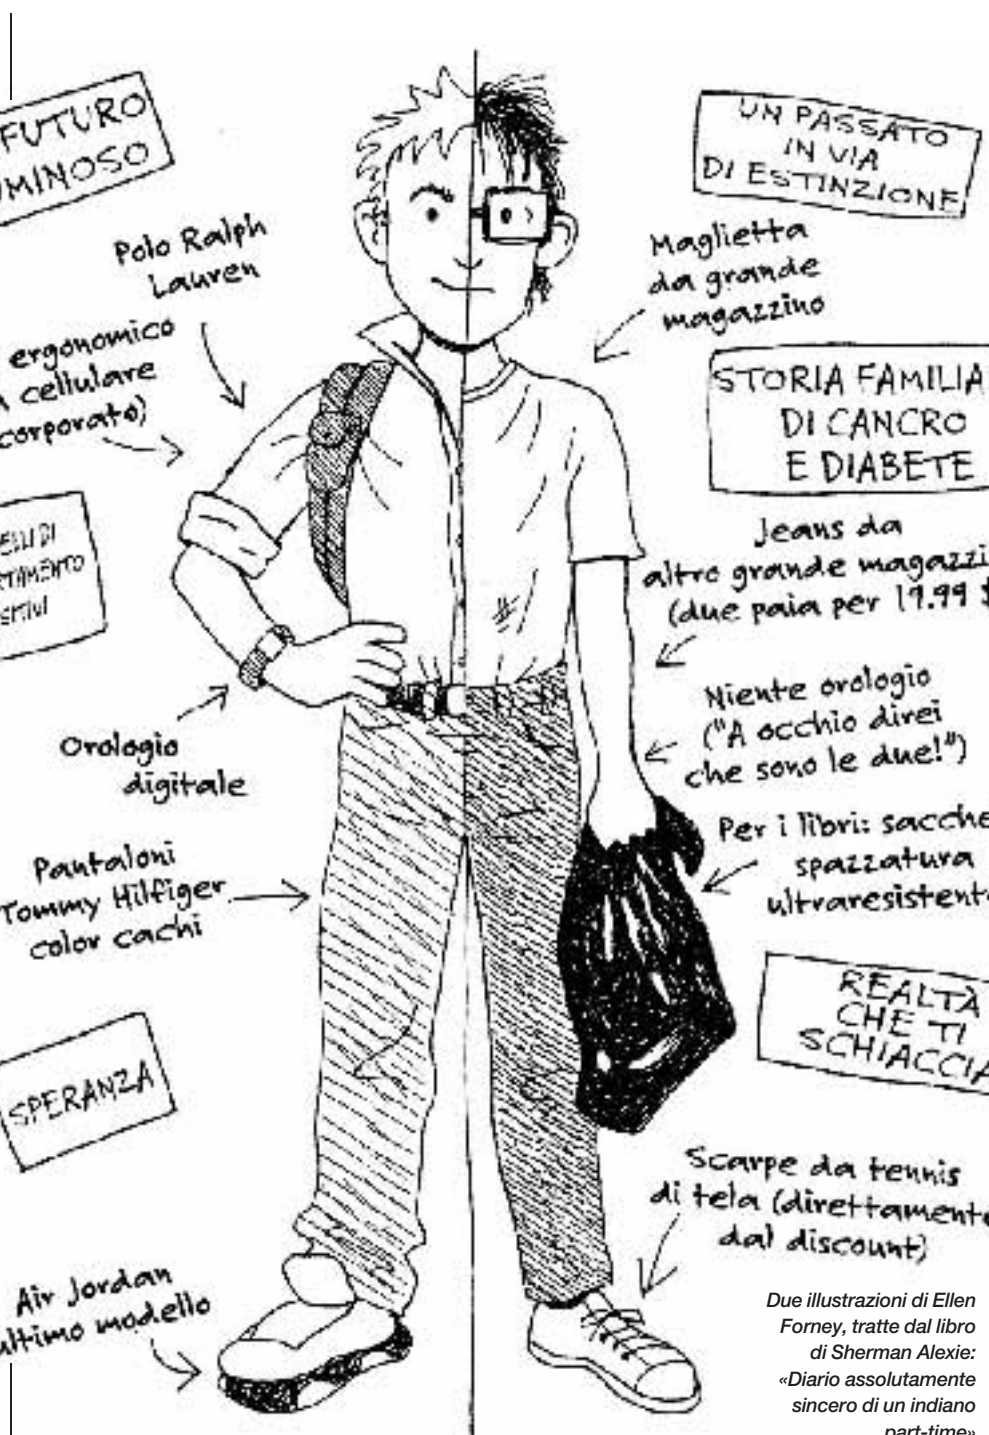 FUTURO
MINOSO
Polo Ralph
Lauren
ergonomico
cellulare
corporato)
ELLI DI
RTAMENTO
SITIVI
Orologio
digitale
Pantaloni
Tommy Hilfiger
color cachi
SPERANZA
Air Jordan
ultimo modello
UN PASSATO
IN VIA
DI ESTINZIONE
Maglietta
da grande
magazzino
STORIA FAMILIA
DI CANCRO
E DIABETE
Jeans da
altro grande magazzi
(due paia per 19.99 $
Niente orologio
("A occhio direi
che sono le due!")
Per i libri: sacche
spazzatura
ultraresistent
REALTÀ
CHE TI
SCHIACCIA
Scarpe da tennis
di tela (direttament
dal discount)
Due illustrazioni di Ellen
Forney, tratte dal libro
di Sherman Alexie:
«Diario assolutamente
sincero di un indiano
part-time»